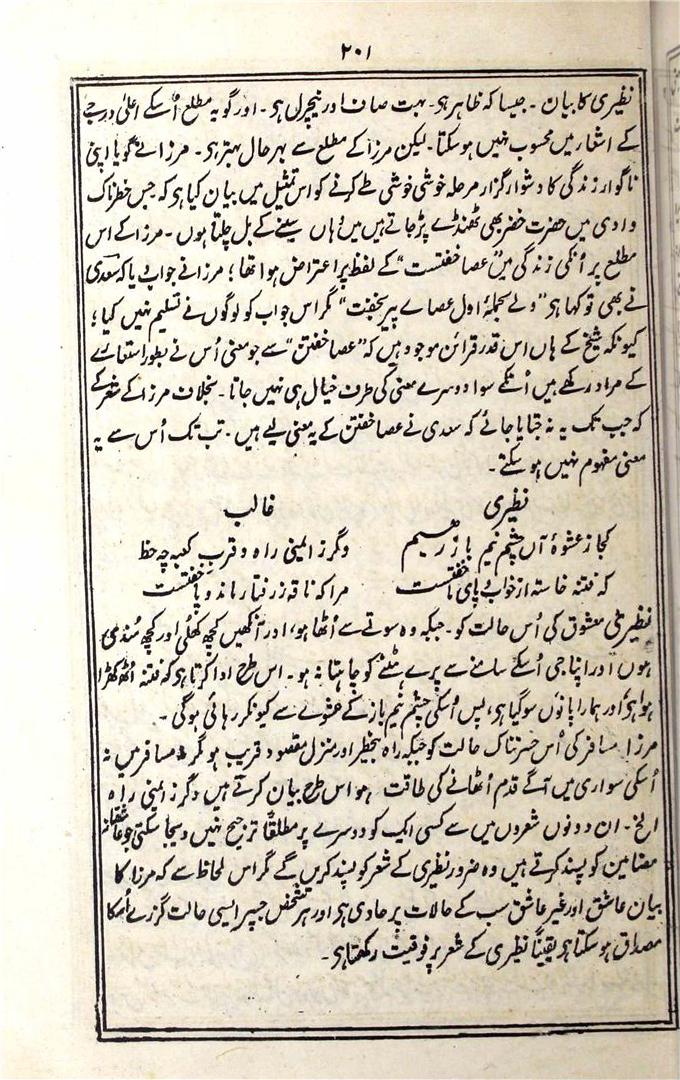 ۲۰۱
نظیری کا بیان ۔ جیسا کہ ظاہر ہی۔ بہت صاف اور نیچرل ہی ۔ اور گو یہ مطلع اُسکے اعلیٰ درجے
کے اشعار میں محسوب نہیں ہوسکتا۔ لیکن مرزا کے مطلع سے بہر حال بہتر ہی ۔ مرزا نے گویا اپنی
ناگوار زندگی کا دشوار گزار مرحلہ خوشی خوشی طے کرنے کو اس تمثیل میں بیان کیا ہی کہ جس خطرناک
وادی میں حضرت خضر بھی ٹھنڈے پڑجاتے ہیں میں وہاں سینے کے بل چلتا ہوں ۔ مرزا کے اس
مطلع پر اُنکی زندگی میں ”عصا خفتست“ کے لفظ پر اعتراض ہوا تھا ؛ مرزا نے جواب دیا کہ سعدی
نے بھی تو کہا ہی ”ولے بحملۂ اول عصاے پیر بخفت“ مگر اس جواب کو لوگوں نے تسلیم نہیں کیا ؛
کیونکہ شیخ کے ہاں اس قدر قرائن موجود ہیں کہ ”عصا خفتن“ سے جو معنی اُس نے بطور استعارے
کے مراد رکھے ہیں اُنکے سوا دوسرے معنی کی طرف خیال ہی نہیں جاتا ۔ بخلاف مرزا کے شعر کے
کہ جب تک یہ نہ جتایا جائے کہ سعدی نے عصا خفتن کے یہ معنی لیے ہیں ۔ تب تک اُس سے یہ
معنی مفہوم نہیں ہو سکتے ۔
نظیری غالب
کجا ز عشوۂ آں چشم نیم باز رهیم وگرز ایمنی راہ و قرب کعبہ چہ حظ
کہ فتنہ خاستہ از خواب و پاے ما خفتست مرا کہ ناقہ ز رفتار ماند و پا خفتست
نظیری معشوق کی اُس حالت کو ۔ جبکہ وہ سوتے سے اُٹھا ہو، اور آنکھیں کچھ کھلی اور کچھ مُندھی
ہوں اور اپنا جی اُسکے سامنے سے پرے ہٹنے کو چاہتا نہ ہو ۔ اس طرح ادا کرتا ہی کہ فتنہ اُٹھ کھڑا
ہوا ہی اور ہمارا پانوں سوگیا ہی، پس اُسکی چشم نیم باز کے عشوے سے کیونکر رہائی ہوگی ۔
مرزا مسافر کی اُس حسرتناک حالت کو جبکہ راہ بیخطر اور منزل مقصود قریب ہو مگر نہ مسافر میں نہ
اُسکی سواری میں آگے قدم اُٹھانے کی طاقت ہو اس طرح بیان کرتے ہیں وگرز ایمنی راہ
الخ ۔ ان دونوں شعروں میں سے کسی ایک کو دوسرے پر مطلقاً ترجیح نہیں دیجا سکتی جو عاشقانہ
مضامین کو پسند کرتے ہیں وہ ضرور نظیری کے شعر کو پسند کریں گے مگر اس لحاظ سے کہ مرزا کا
بیان عاشق اور غیر عاشق سب کے حالات پر حاوی ہی اور ہر شخص جسپر ایسی حالت گزرے اُسکا
مصداق ہوسکتا ہی یقیناً نظیری کے شعر پر فوقیت رکھتا ہی ۔